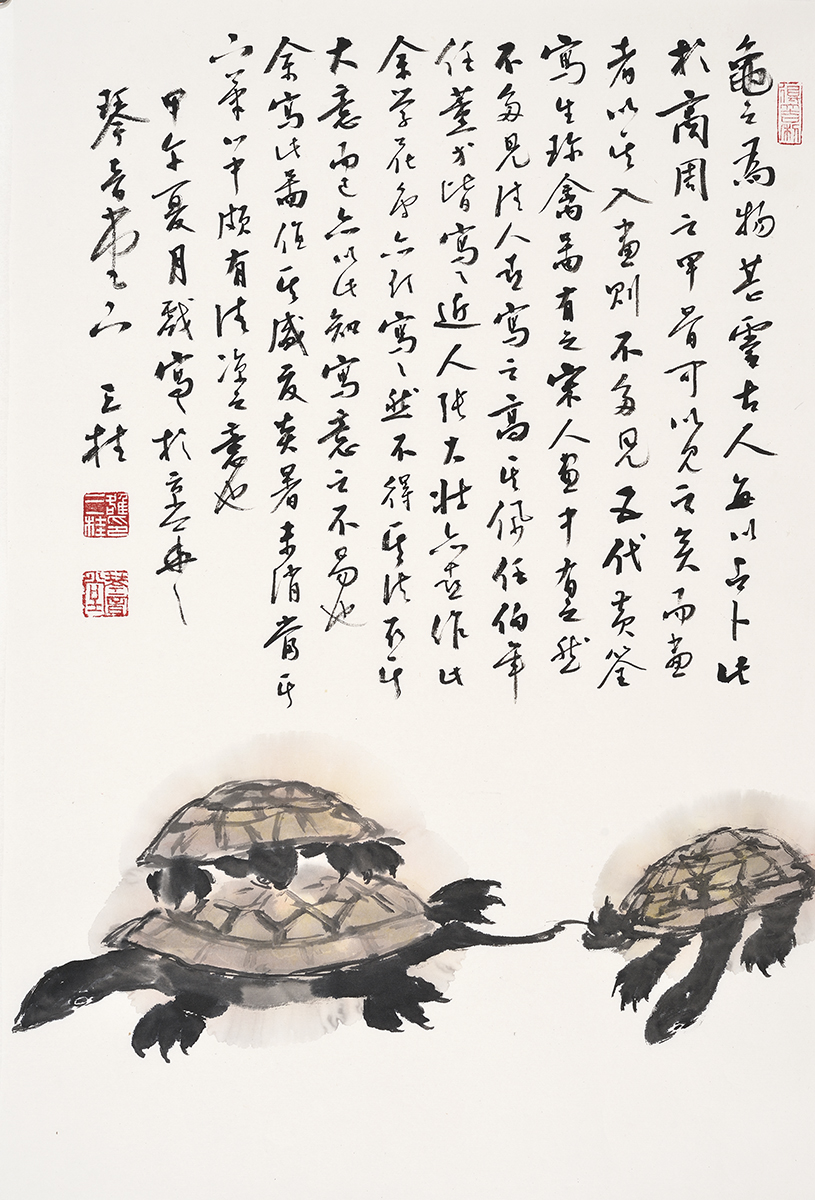 龜之爲物甚靈古人每以占卜此
於商周之甲骨可以見之矣而畫
者以其入畫則不多見五代黄筌
寫生珍禽圖有之宋人畫中有之然
不多見清人喜寫之高其佩任伯年
任薰等皆寫之近人張大壯亦喜作此
余学花鳥亦好寫之然不得其法取其
大意而已亦以此知寫意之不易也
余寫此圖值其盛夏炎暑未消當其
下筆心中頗有清凉之意也
甲午夏月戲寫於京華
琴音堂下 三桂
雒三桂印
琴音堂